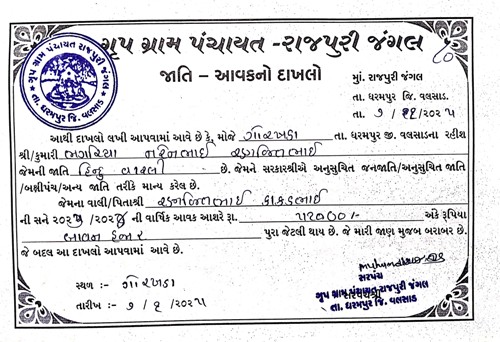 ગૃપ ગ્રામ પંચાયત રાજપુરી જંગલ
તા. ધરમપુર જિ. વલસાડ
ગૃપ ગ્રામ પંચાયત -રાજપુરી જંગલ
જાતિ – આવકનો દાખલો
મુ. રાજપુરી જંગલ
તા. ધરમપુર જિ. વલસાડ.
તા. ૭ / /૨૦૨૫
આથી દાખલો લખી આપવામાં આવે છે કે, મોજે ગોરખડા તા. ધરમપુર જી. વલસાડના રહીશ
શ્રી/કુમારી
જેમની જાતિ હિન્દુ વારલી છે. જેમને સરકારશ્રીએ અનુસુચિત જનજાતિ/અનુસુચિત જાતિ
/બક્ષીપંચ/અન્ય જાતિ તરીકે માન્ય કરેલ છે.
જેમના વાલી/પિતાશ્રી
ની સને ૨૦૨ /૨૦૨ ની વાર્ષિક આવક આશરે રૂા. ૫૨૦૦૦/- અંકે રૂપિયા
બાવન હજાર પુરા જેટલી થાય છે. જે મારી જાણ મુજબ બરાબર છે.
જે બદલ આ દાખલો આપવામાં આવે છે.
સ્થળ :- ગોરખડા
તારીખ :- ૭ / /૨૦૨૫
સરપંચ
ગૃપ ગ્રામ પંચાયત રાજપુરી જંગલ
તા. ધરમપુર જિ. વલસાડ.